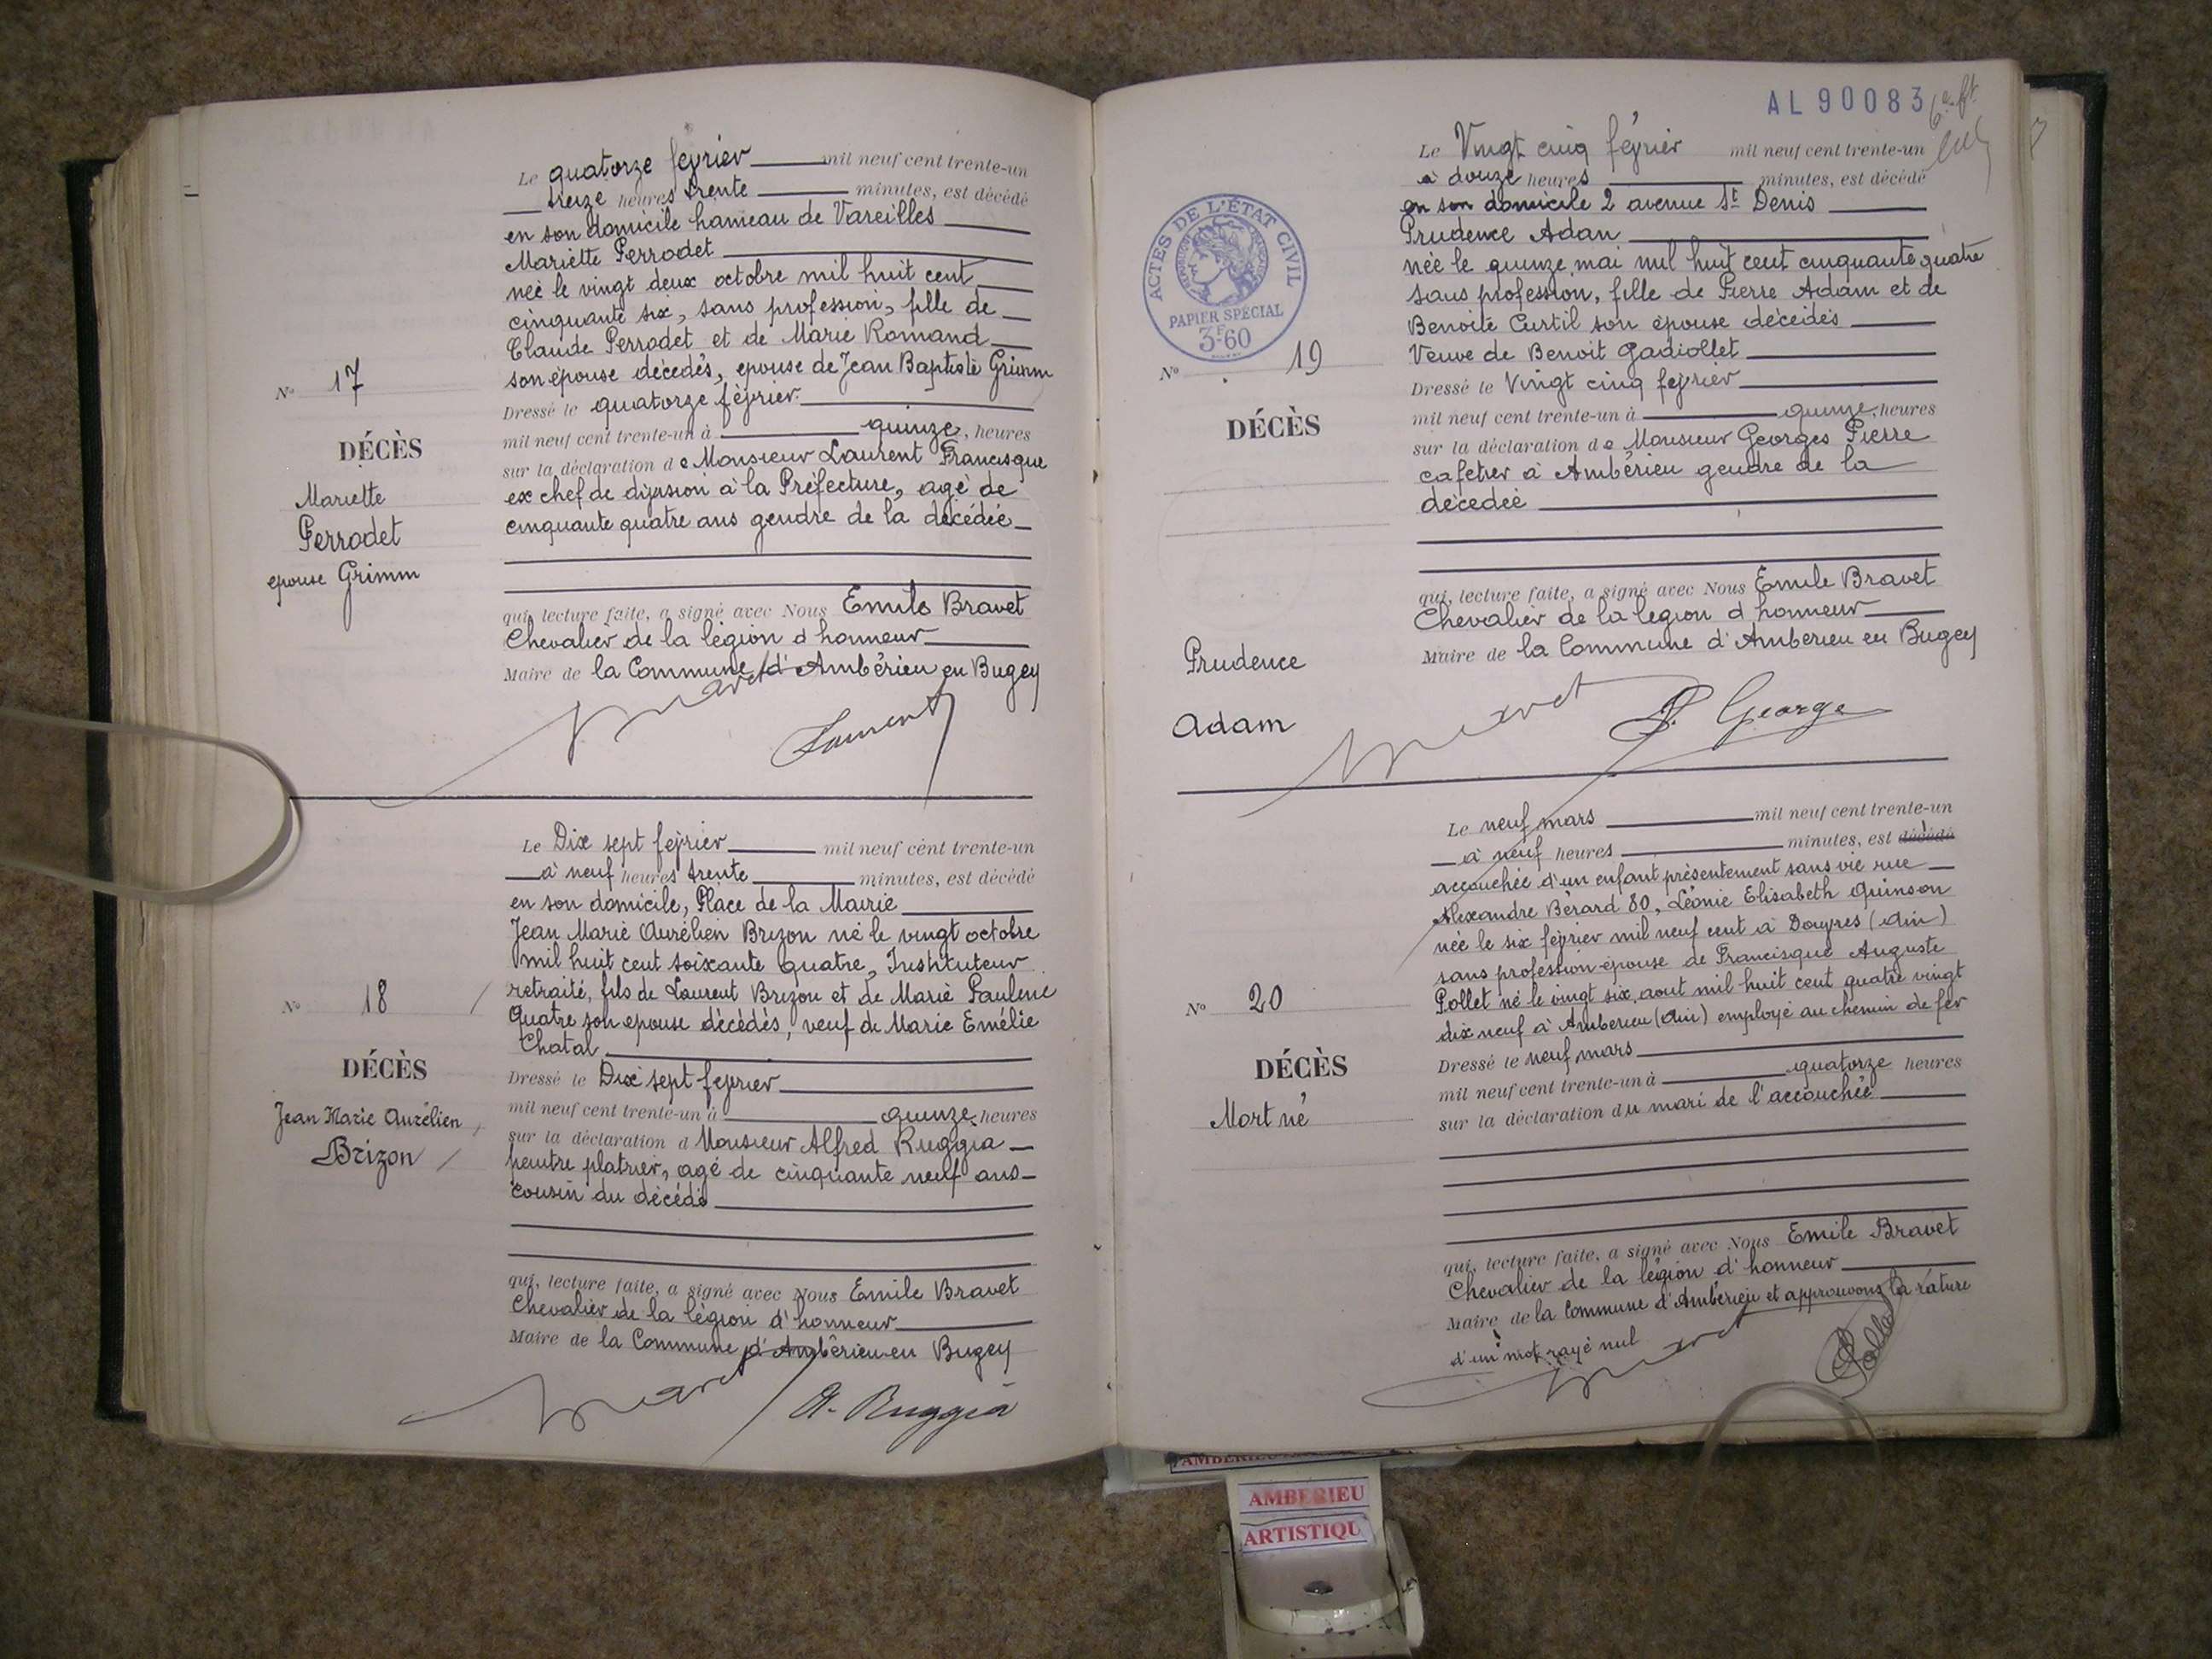 Le quatorze février mil neuf cent trente-un
treize heures trente minutes, est décédé
en son domicile hameau de Vareilles
Mariette Perrodet
née le vingt deux octobre mil huit cent
cinquante six, sans profession, fille de
Claude Perrodet et de Marie Romand
son épouse décédés, épouse de Jean Baptiste Grimm
Nº 17
Dressé le quatorze février
mil neuf cent trente-un à quinze, heures
DÉCÈS
sur la déclaration de Monsieur Laurent Francisque
Mariette
ex chef de division à la Préfecture, agé de
Perrodet
cinquante quatre ans gendre de la décédée
epouse Grimm
qui, lecture faite, a signé avec Nous Emile Bravet
Chevalier de la légion d honneur
Maire de la Commune d'Ambérieu en Bugey
Bravet
Laurent
Le Dix sept février mil neuf cent trente-un
à neuf heures trente minutes, est décédé
en son domicile, Place de la Mairie
Jean Marie Aurélien Brizon né le vingt octobre
mil huit cent soixante quatre, Instituteur
retraité, fils de Laurent Brizon et de Marie Pauline
Nº 18
Quatre son epouse décédés, veuf de Marie Emélie
Chatal
DÉCÈS
Dressé le Dix sept février
mil neuf cent trente-un à quinze heures
Jean Marie Aurélien
Brizon
sur la déclaration d Monsieur Alfred Ruggia
peintre platrier, agé de cinquante neuf ans
cousin du décédé
qui, lecture faite, a signé avec Nous Emile Bravet
Chevalier de la légion d'honneur
Maire de la Commune d'Ambérieu en Bugey
Bravet
A. Ruggia
AL 90083
Le Vingt cinq février mil neuf cent trente-un
à douze heures minutes, est décédé
en son domicile 2 avenue St Denis
Prudence Adan
née le quinze mai mil huit cent cinquante quatre
sans profession, fille de Pierre Adam et de
Benoite Curtil son épouse décédés
Veuve de Benoit Gadiollet
ACTES DE L'ÉTAT CIVIL
PAPIER SPÉCIAL
3F60
Nº 19
Dressé le Vingt cinq février
mil neuf cent trente-un à quinze, heures
DÉCÈS
sur la déclaration de Monsieur Georges Pierre
cafetier à Ambérieu gendre de la
décédée
qui, lecture faite, a signé avec Nous Emile Bravet
Chevalier de la légion d honneur
Maire de la Commune d'Amberieu en Bugey
Prudence
Adam
Bravet
P. George
Le neuf mars mil neuf cent trente-un
à neuf heures minutes, est décédé
accouchée d'un enfant présentement sans vie rue
Alexandre Bérard 80, Léonie Elisabeth Quinson
née le six février mil neuf cent à Douvres (Ain)
sans profession épouse de Francisque Auguste
Pollet né le vingt six aout mil huit cent quatre vingt
dix neuf à Amberieu (Ain) employé au chemin de fer
Nº 20
Dressé le neuf mars
mil neuf cent trente-un à quatorze heures
DÉCÈS
sur la déclaration du mari de l'accouchée
Mort né
qui, lecture faite, a signé avec Nous Emile Bravet
Chevalier de la légion d'honneur
Maire de la Commune d'Ambérieu et approuvons la rature
d'un mot rayé nul
Bravet
Pollet
AMBERIEU
AMBERIEU
ARTISTIQU